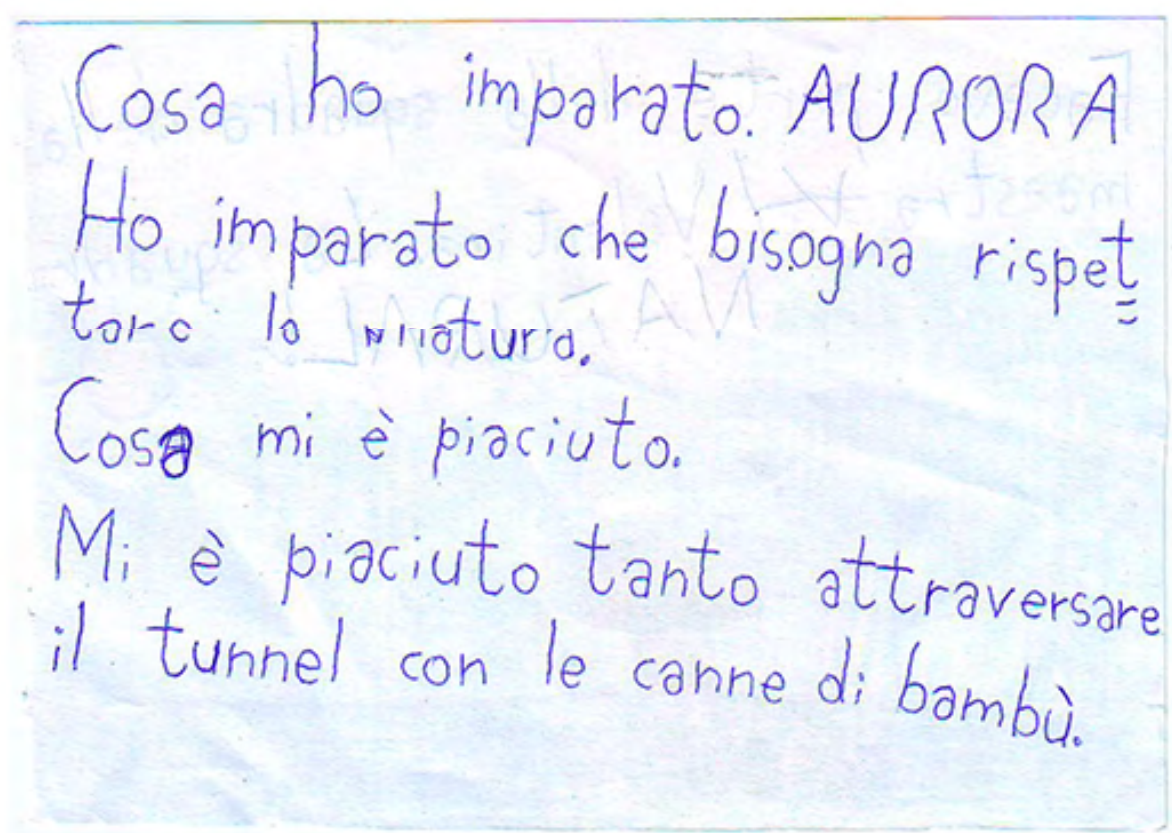 Cosa ho imparato. AURORA
Ho imparato che bisogna rispet=
tare la natura.
Cosa mi è piaciuto.
Mi è piaciuto tanto attraversare
il tunnel con le canne di bambù.